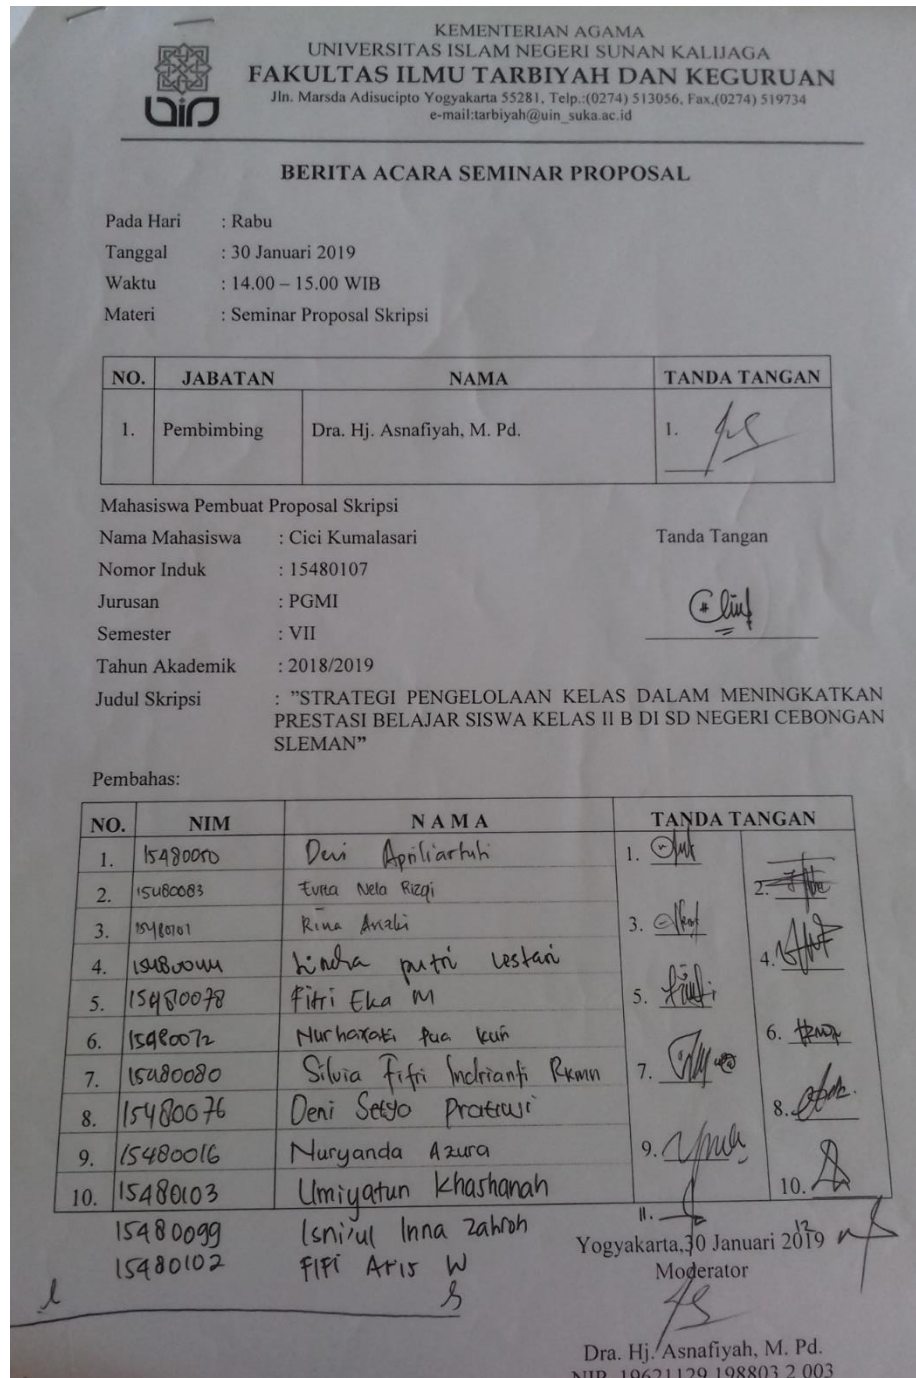 KEMENTERIAN AGAMA
UNIVERSITAS ISLAM NEGERI SUNAN KALIJAGA
FAKULTAS ILMU TARBIYAH DAN KEGURUAN
Jln. Marsda Adisucipto Yogyakarta 55281, Telp.:(0274) 513056, Fax.(0274) 519734
e-mail:tarbiyah@uin_suka.ac.id
uin
BERITA ACARA SEMINAR PROPOSAL
Pada Hari : Rabu
Tanggal : 30 Januari 2019
Waktu : 14.00 – 15.00 WIB
Materi : Seminar Proposal Skripsi
NO. JABATAN NAMA TANDA TANGAN
1. Pembimbing Dra. Hj. Asnafiyah, M. Pd. 1.
Mahasiswa Pembuat Proposal Skripsi
Nama Mahasiswa : Cici Kumalasari Tanda Tangan
Nomor Induk : 15480107
Jurusan : PGMI
Semester : VII
Tahun Akademik : 2018/2019
Judul Skripsi : ”STRATEGI PENGELOLAAN KELAS DALAM MENINGKATKAN
PRESTASI BELAJAR SISWA KELAS II B DI SD NEGERI CEBONGAN
SLEMAN”
Pembahas:
NO. NIM N A M A TANDA TANGAN
1. 15480050 Devi Apriliartuti 1.
2. 15480083 Evita Nela Rizqi 2.
3. 15480101 Rina 3.
4. 15480044 Lindra putri Lestari 4.
5. 15480078 Fitri Eka M 5.
6. 15480072 Nurhayati 6.
7. 15480080 Silvia Fitri Indrianti 7.
8. 15480076 Deni Setyo Pratiwi 8.
9. 15480016 Nuryanda Azura 9.
10. 15480103 Umiyatun Khashanah 10.
15480099 Isni'ul Inna Zahroh 11.
15480102 FIFI Aris W 12
Yogyakarta,30 Januari 2019
Moderator
Dra. Hj. Asnafiyah, M. Pd.
NIP. 19621129 198803 2 003